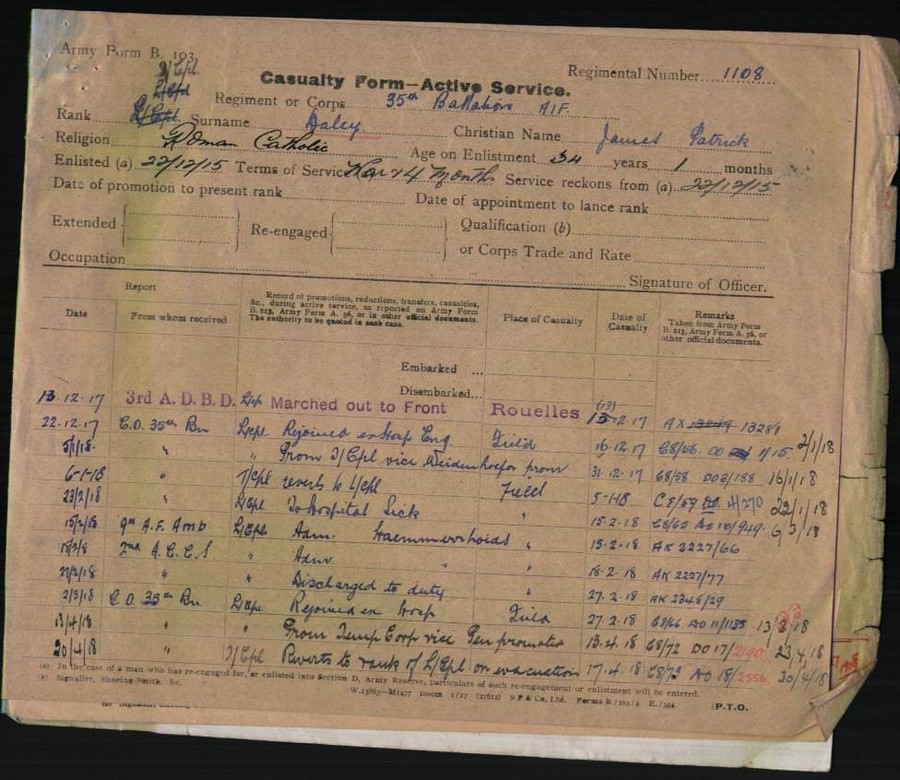 Army Form B. 103
T/Cpl.
L/Cpl
Casualty Form—Active Service.
Regimental Number 1108
Regiment or Corps 35th Battalion A.I.F.
Rank L/Cpl Surname Daley Christian Name James Patrick
Religion Roman Catholic Age on Enlistment 34 years 1 months
Enlisted (a) 22/12/15 Terms of Service War & 4 Months Service reckons from (a) 22/12/15
Date of promotion to present rank Date of appointment to lance rank
Extended Re-engaged Qualification (b)
or Corps Trade and Rate
Occupation Signature of Officer.
Report
Date From whom received
Record of promotions, reductions, transfers, casualties,
&c., during active service, as reported on Army Form
B. 213, Army Form A. 36, or in other official documents.
The authority to be quoted in each case.
Place of Casualty
Date of
Casualty
Remarks
Taken from Army Form
B. 213, Army Form A. 36, or
other official documents.
Embarked ...
Disembarked...
13.12.17 3rd A. D. B. D. L/Cpl Marched out to Front Rouelles (13) 13-12.17 AX 13249 13281
22.12.17 C.O. 35th Bn L/Cpl Rejoined ex Hosp Eng. Field 16.12.17 C8/56. DO 1/15 2/1/18
5/1/18. " " Prom T/Cpl vice prom 31.12.17 C8/58 DO 2/188 16/1/18
6-1-18 " T/Cpl reverts to L/Cpl Field 5-1-18 C8/59 DO. 4/270 22/1/18
23/2/18 " L/Cpl To Hospital Sick " 15.2.18 C8/65 DO 10/949 6/3/18
15/2/18 9th A.F. Amb L/Cpl Adm. Haemmerrhoids " 15.2.18 AK 2227/66
18/2/8 2nd A.C.C.S " Adm " " 18-2.18 AK 2227/77
27/2/18 " " Discharged to duty " 27.2.18 AK 2348/29
2/3/18 C.O. 35th Bn L/Cpl Rejoined ex Hosp Field 27.2.18 C8/66 DO 11/1135 13/3/18
13/4/18 " " Prom Temp Corp vice promoted 13.4.18 C8/72 DO 17/2190 23.4.18
20/4/18 " T/Cpl Reverts to rank of L/Cpl on evacuation 17.4.18 C8/73 DO 18/2356 30/4/18
(a) In the case of a man who has re-engaged for, or enlisted into Section D, Army Reserve, particulars of such re-engagement or enlistment will be entered.
(b) Signaller, Shoeing-Smith, &c.
P.T.O.